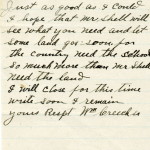 Just as good as I could
I hope that Mr Shell will
see what you need and let
some land go soon for
the country need the
So much more than Mr Shell
Need the land
I will close for this time
write soon I remain
yours Respt Wm